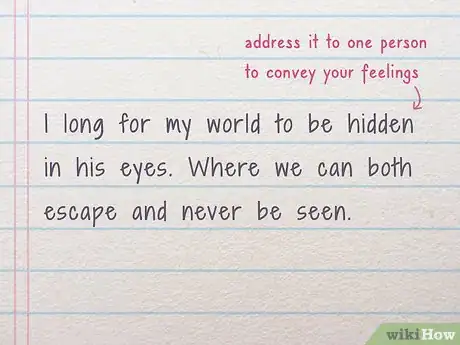 address it to one person
to convey your feelings
I long for my world to be hidden
in his eyes. Where we can both
escape and never be seen.
wikiHow